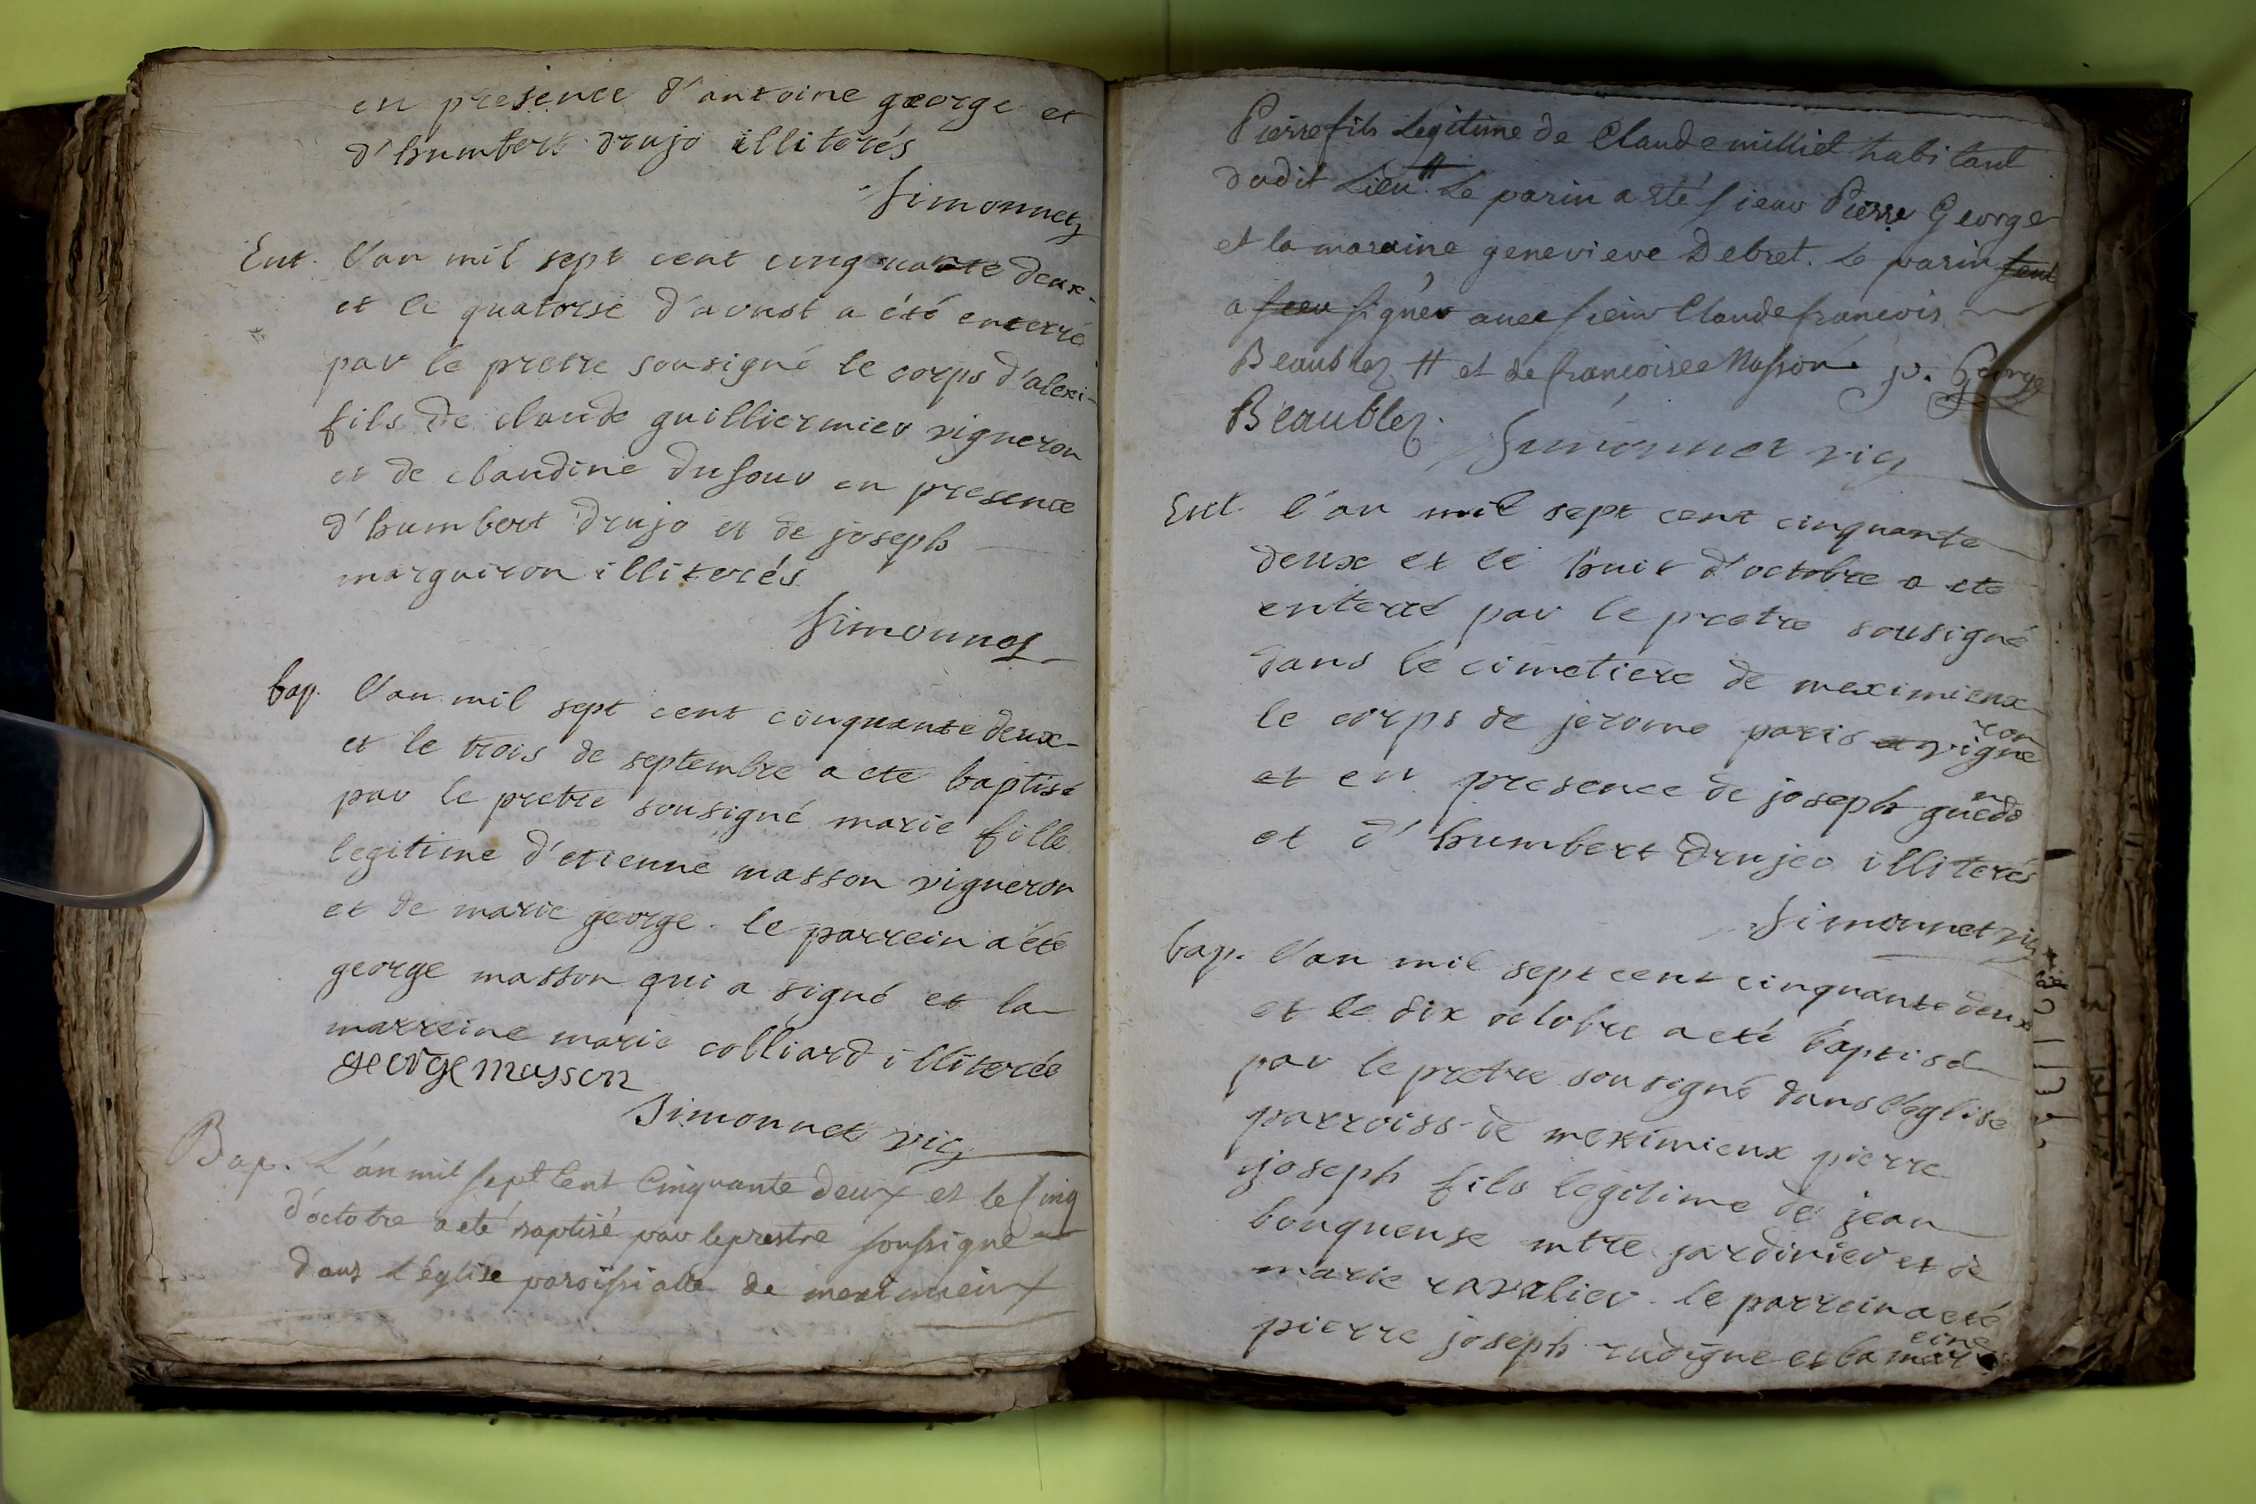 en presence d'antoine george et
d'humbert drujo illiterés
Simonnet
Ent. l'an mil sept cent cinquante deux
et le quatorse d'aoust a été enterré
par le pretre sousigné le corps d'alexi
fils de claude guilliermier vigneron
et de claudine dufour en presence
d'humbert drujo et de joseph
marguiron illiterés
Simonnet
bap. l'an mil sept cent cinquante deux
et le trois de septembre a eté baptisé
par le pretre sousigné marie fille
legitime d'etienne masson vigneron
et de marie george. le parrein a été
george masson qui a signé et la
marreine marie colliard illiterée
george masson
Simonnet vic
Bap. L'an mil sept Cent Cinquante deux et le Cinq
d'octobre a eté baptisé par le prestre soussigné
dans L'église paroissialle de meximieux
Pierre fils Legitime de Claude milliet habitant
dudit Lieu # Le parin a eté sieur Pierre George
et la maraine genevieve Debret. Le parin seul
a signér avec sieur Claude francois
Beaublez # et de francoise Masson. p. George
Beaublez.
Simonnet vic
Ent. l'an mil sept cent cinquante
deux et le huit d'octobre a ete
enterré par le pretre sousigné
dans le cimetiere de meximieux
le corps de jerome paris et vigneron
et en presence de joseph
et d'humbert drujeo illiterés
Simonnet vic
bap. l'an mil sept cent cinquante deux
et le dix octobre a eté baptisé
par le pretre sousigné dans l'eglise
parroiss. de meximieux pierre
joseph fils legitime de jean
bouquense mtre jardinier et de
marie ravalier. le parrein a eté
pierre joseph rudigne et la marreine